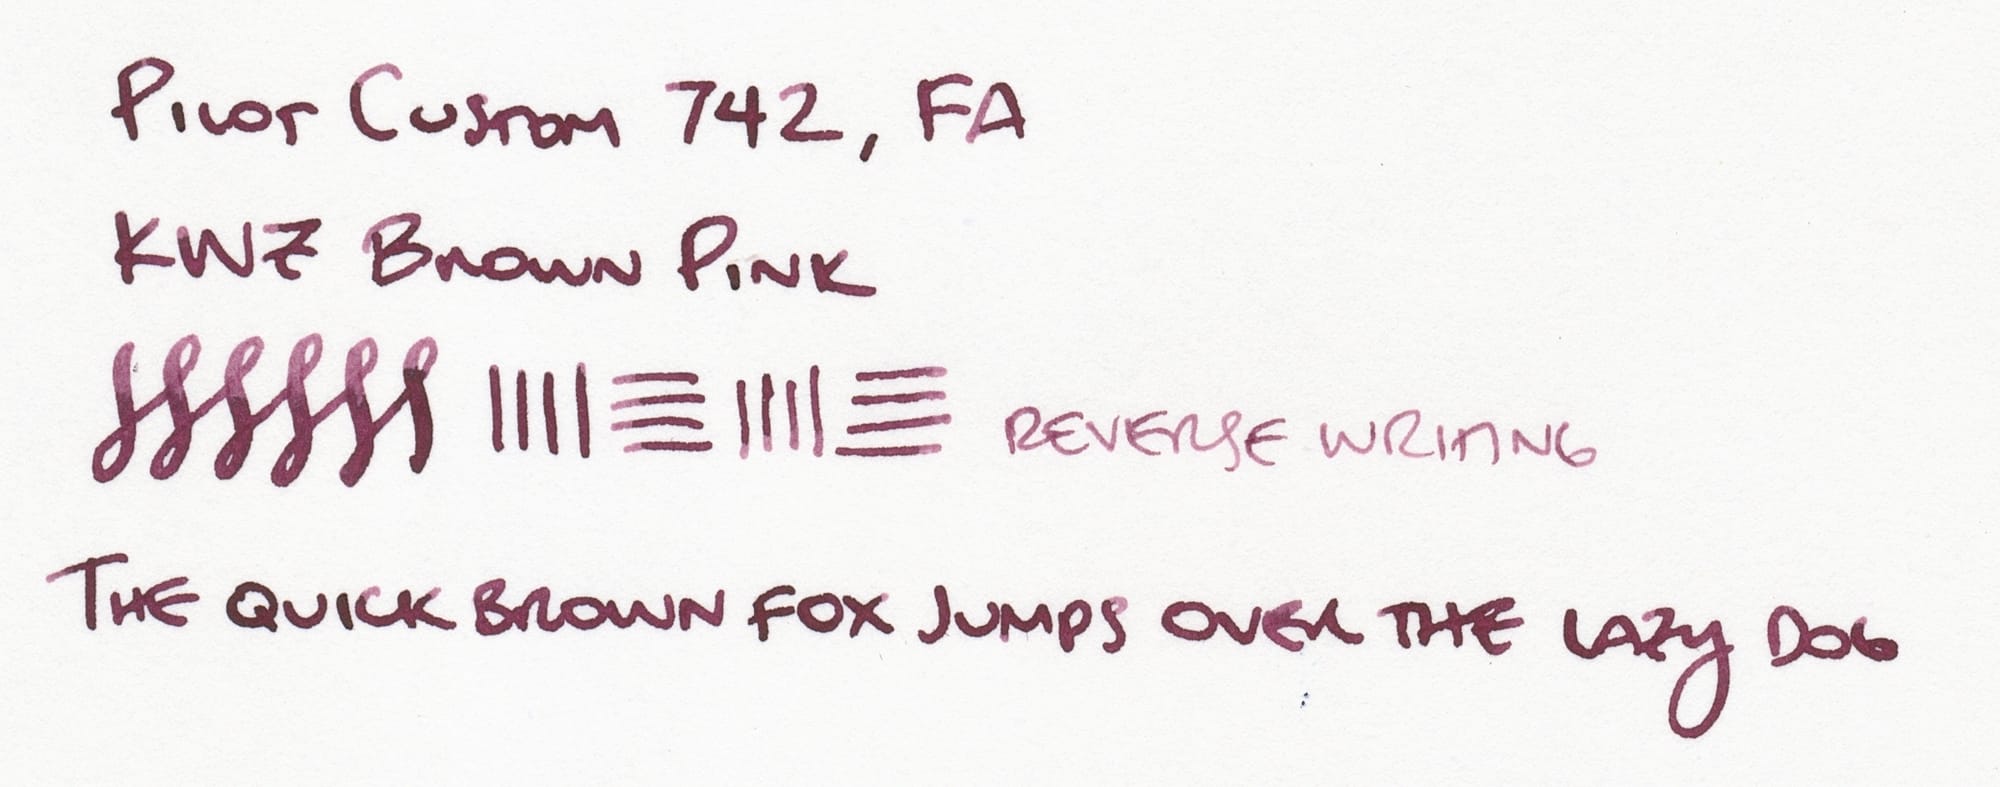 Pilot Custom 742, FA
KWZ Brown Pink
REVERSE WRITING
THE QUICK BROWN FOX JUMPS OVER THE LAZY DOG